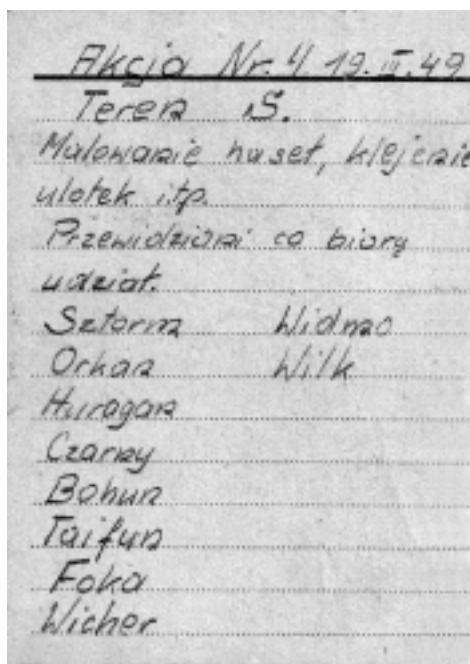 Akcja Nr. 4 19.III.49
Teren S.
Malowanie haseł, klejenie
ulotek itp.
Przewidziani co biorą
udział.
Sztorm Widmo
Orkan Wilk
Huragan
Czarny
Bohun
Taifun
Foka
Wicher